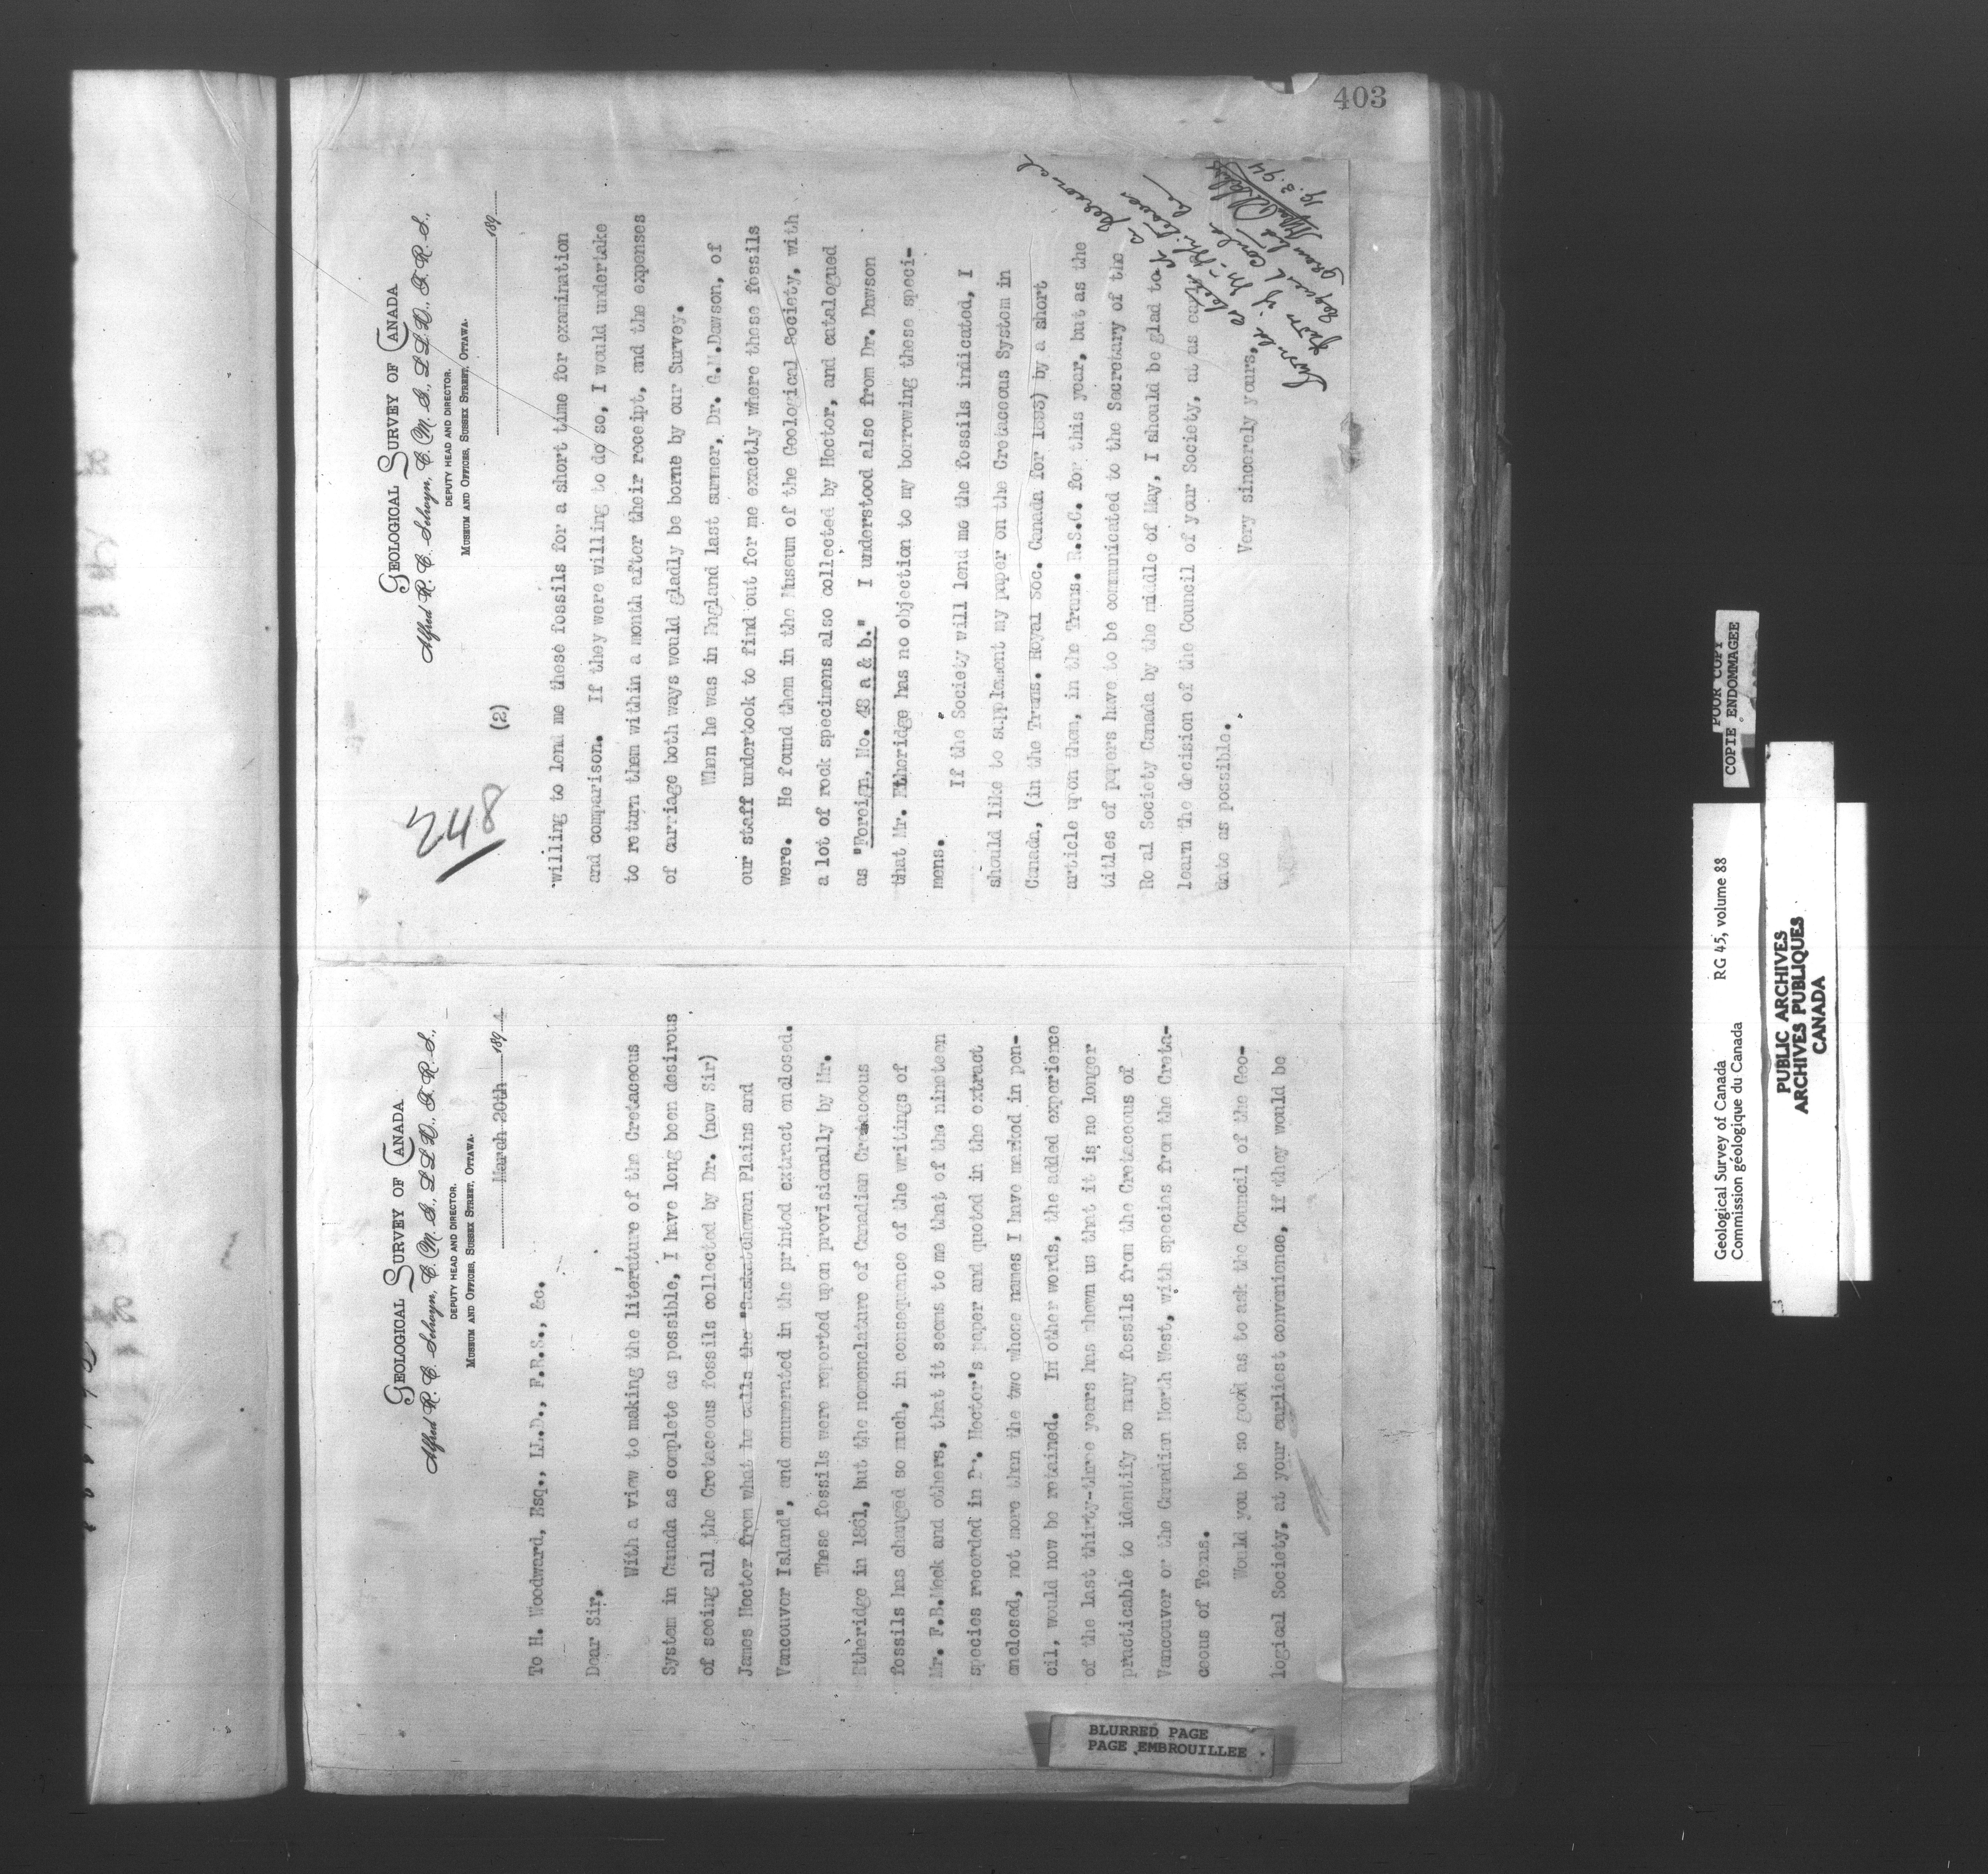 GEOLOGICAL SURVEY OF CANADA
Alfred R. C. Selwyn, C. M. G., LL.D., F. R. S.,
DEPUTY HEAD AND DIRECTOR.
MUSEUM AND OFFICES, SUSSEX STREET, OTTAWA.
March 20th 189 4
To H. Woodward, Esq., LL.D., F.R.S., &c.
Dear Sir,
With a view to making the literature of the Cretaceous
System in Canada as complete as possible, I have long been desirous
of seeing all the Cretaceous fossils collected by Dr. (now Sir)
James Hector from what he calls the "Saskatchewan Plains and
Vancouver Island", and enumerated in the printed extract enclosed.
These fossils were reported upon provisionally by Mr.
Etheridge in 1861, but the nomenclature of Canadian Cretaceous
fossils has changed so much, in consequence of the writings of
Mr. F.B.Meek and others, that it seems to me that of the nineteen
species recorded in Dr. Hector's paper and quoted in the extract
enclosed, not more than the two whose names I have marked in pen-
cil, would now be retained. In other words, the added experience
of the last thirty-three years has shown us that it is no longer
practicable to identify so many fossils from the Cretaceous of
Vancouver or the Canadian North West, with species from the Creta-
ceous of Texas.
Would you be so good as to ask the Council of the Geo-
logical Society, at your earliest convenience, if they would be
403
GEOLOGICAL SURVEY OF CANADA
Alfred R. C. Selwyn, C. M. G., LL.D., F. R. S.,
DEPUTY HEAD AND DIRECTOR.
MUSEUM AND OFFICES, SUSSEX STREET, OTTAWA.
189
248
(2)
willing to lend me these fossils for a short time for examination
and comparison. If they were willing to do so, I would undertake
to return them within a month after their receipt, and the expenses
of carriage both ways would gladly be borne by our Survey.
When he was in England last summer, Dr. G.M.Dawson, of
our staff undertook to find out for me exactly where these fossils
were. He found them in the Museum of the Geological Society, with
a lot of rock specimens also collected by Hector, and catalogued
as "Foreign, No. 48 a & b." I understood also from Dr. Dawson
that Mr. Etheridge has no objection to my borrowing these speci-
mens.
If the Society will lend me the fossils indicated, I
should like to supplement my paper on the Cretaceous System in
Canada, (in the Trans. Royal Soc. Canada for 1893) by a short
article upon them, in the Trans. R.S.C. for this year, but as the
titles of papers have to be communicated to the Secretary of the
Ro al Society Canada by the middle of May, I should be glad to
learn the decision of the Council of your Society, at as early
date as possible.
Very sincerely yours,
a personal
19.3.94
BLURRED PAGE
PAGE EMBROUILLEE
Geological Survey of Canada RG 45, volume 88
Commission géologique du Canada
POOR COPY
COPIE ENDOMMAGEE
PUBLIC ARCHIVES
ARCHIVES PUBLIQUES
CANADA